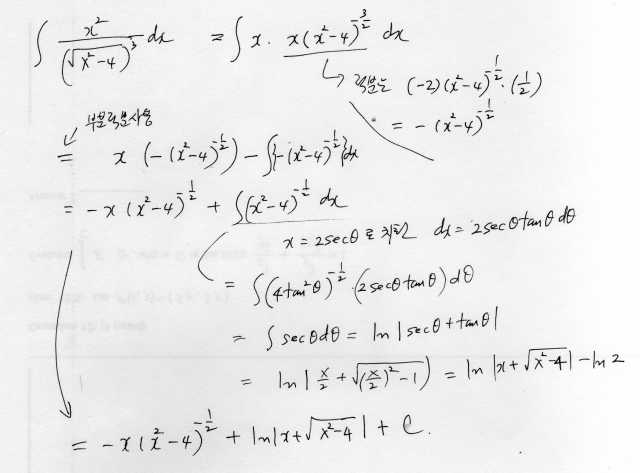 ∫ x²/(√x²-4)³ dx = ∫ x · x(x²-4)^(-3/2) dx
적분은 (-2)(x²-4)^(-1/2) · (1/2)
= -(x²-4)^(-1/2)
부분적분사용
= x (-(x²-4)^(-1/2)) - ∫{-(x²-4)^(-1/2)}dx
= -x (x²-4)^(-1/2) + ∫(x²-4)^(-1/2) dx
x = 2secθ 로 치환 dx = 2secθtanθ dθ
= ∫(4tan²θ)^(-1/2) · (2secθtanθ)dθ
= ∫ secθdθ = ln|secθ+tanθ|
= ln|x/2 + √((x/2)²-1)| = ln|x+√x²-4| - ln2
= -x(x²-4)^(-1/2) + ln|x+√x²-4| + C.